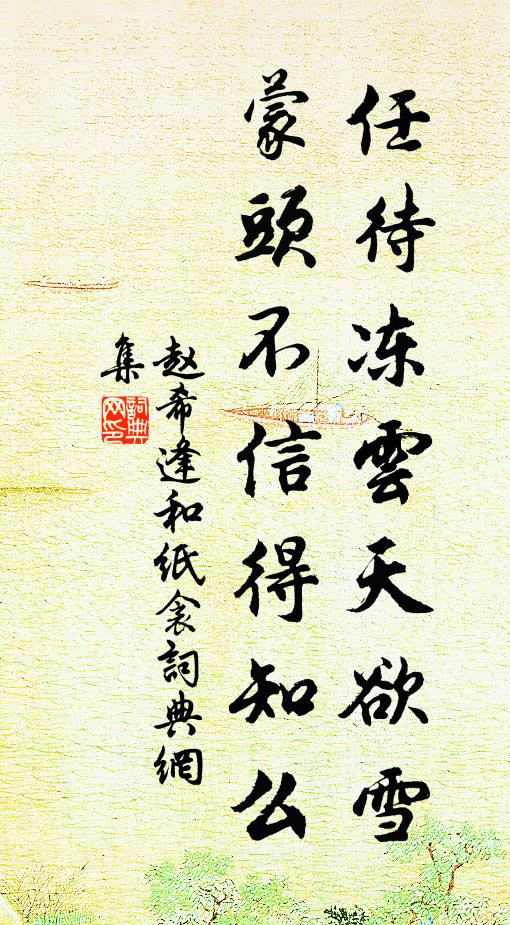 任待冻雲天欲雪
蒙頭不信得知么
赵希逢和纸衾詞典網
集
詞典
网印